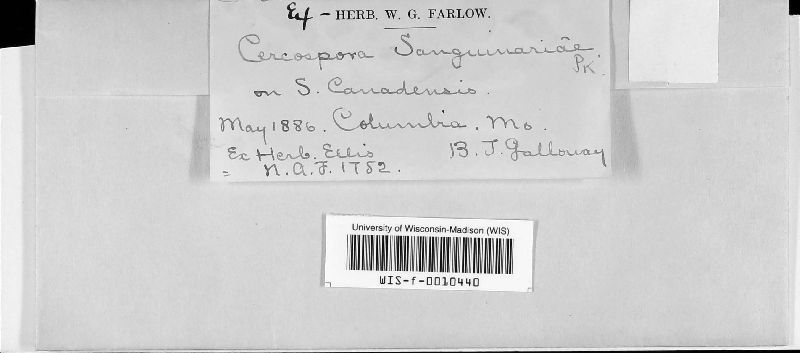 Ex – HERB. W. G. FARLOW.
Cercospora Sanguinariae
Pk.
on S. Canadensis.
May 1886. Columbia, Mo.
Ex Herb. Ellis B. T. Galloway
= N.A.F. 1752.
University of Wisconsin-Madison (WIS)
WIS-f-0010440